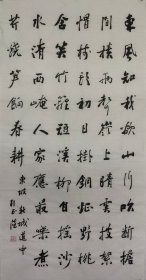 東風知我欲山行吹斷簷
間積雨聲嶺上晴雲披絮
帽樹頭初日掛銅鉦野桃
含笑竹籬短溪柳自搖沙
水清西崦人家應最樂煮
芹燒筍餉春耕
東坡新城道中